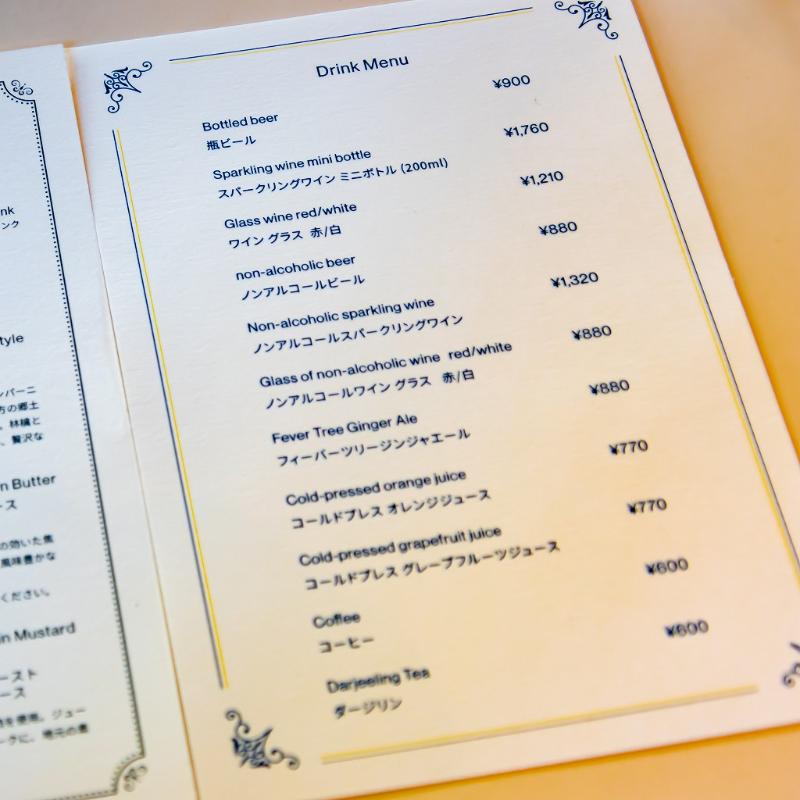 Drink Menu
Bottled beer ¥900
瓶ビール
Sparkling wine mini bottle ¥1,760
スパークリングワイン ミニボトル (200ml)
Glass wine red/white ¥1,210
ワイン グラス 赤/白
non-alcoholic beer ¥880
ノンアルコールビール
Non-alcoholic sparkling wine ¥1,320
ノンアルコールスパークリングワイン
Glass of non-alcoholic wine red/white ¥880
ノンアルコールワイン グラス 赤/白
Fever Tree Ginger Ale ¥880
フィーバーツリージンジャエール
Cold-pressed orange juice ¥770
コールドプレス オレンジジュース
Cold-pressed grapefruit juice ¥770
コールドプレス グレープフルーツジュース
Coffee ¥600
コーヒー
Darjeeling Tea ¥600
ダージリン
nk
ンク
tyle
ンパーニ
方の郷土
、林檎と
、贅沢な
n Butter
ース
の効いた焦
風味豊かな
ください。
n Mustard
ースト
ース
を使用。ジュー
ーグに、地元の農